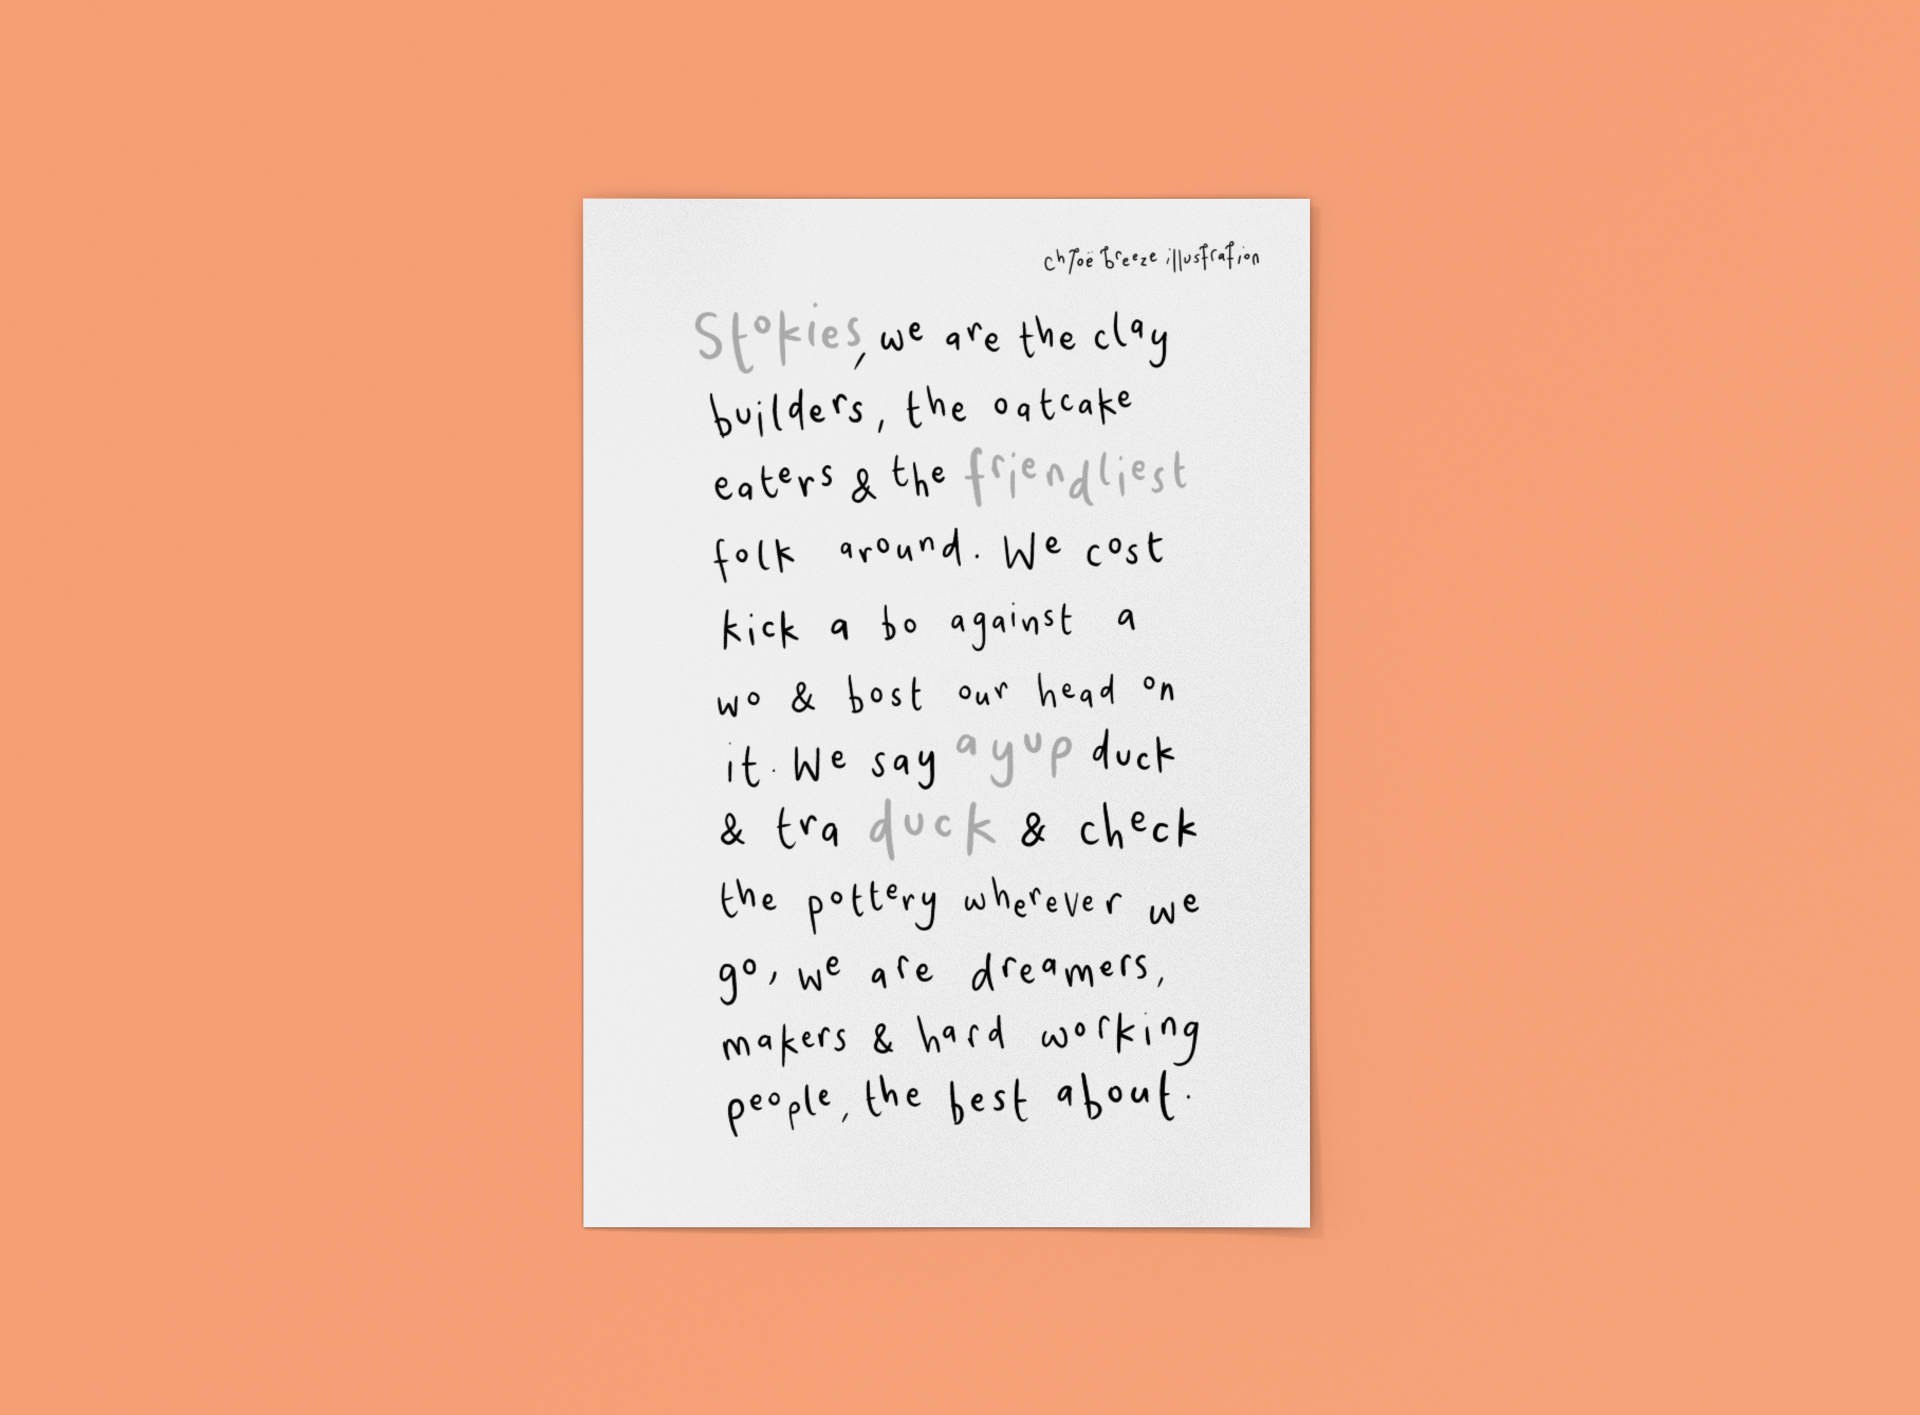 chloë breeze illustration
Stokies, we are the clay
builders, the oatcake
eaters & the friendliest
folk around. We cost
kick a bo against a
wo & bost our head on
it. We say ayup duck
& tra duck & check
the pottery wherever we
go, we are dreamers,
makers & hard working
people, the best about.